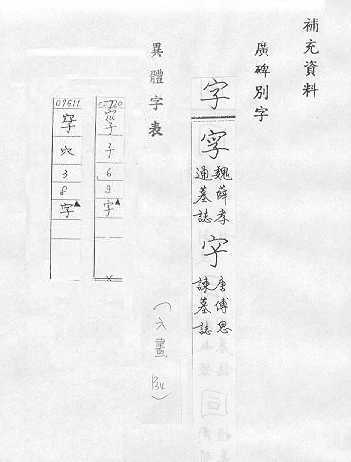 補充資料
廣碑別字
字
魏薛孝
通墓誌
字
唐傅思
諫墓誌
異體字表
子
6
9
字▲
07611
穴
3
8
字▲
(六畫 134)